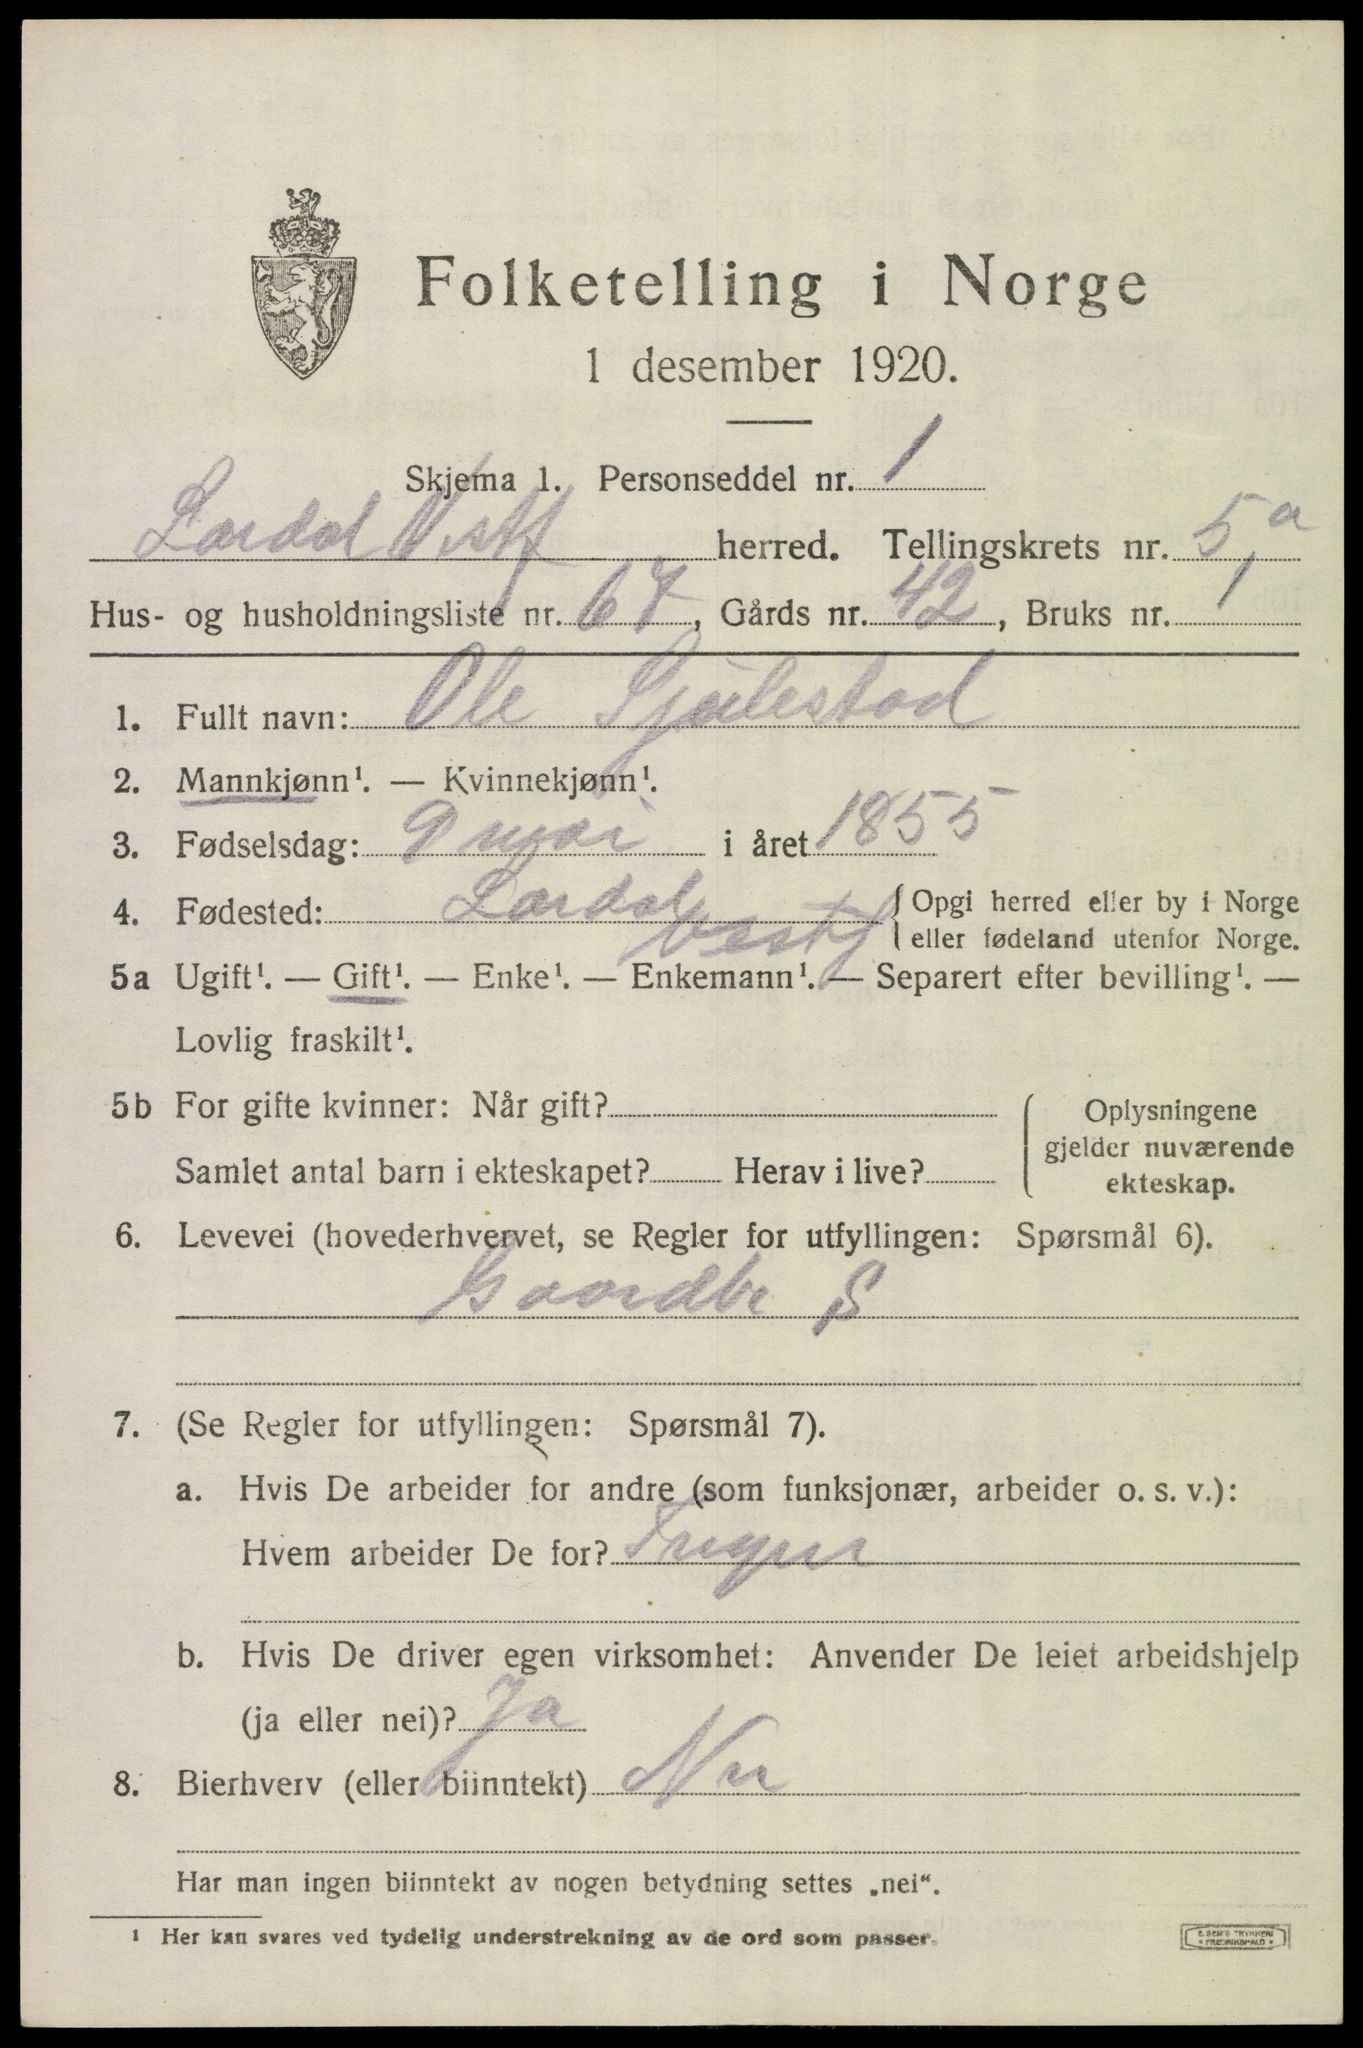 Folketelling i Norge
1 desember 1920.
Skjema 1. Personseddel nr. 1
Lardal Vestf herred. Tellingskrets nr. 5 a
Hus- og husholdningsliste nr. 67, Gårds nr. 42, Bruks nr. 1
1. Fullt navn: Ole Gjulestad
2. Mannkjønn¹. — Kvinnekjønn¹.
3. Fødselsdag: 9 mai i året 1855
4. Fødested: Lardal { Opgi herred eller by i Norge
Vestf { eller fødeland utenfor Norge.
5a Ugift¹. — Gift¹. — Enke¹. — Enkemann¹. — Separert efter bevilling¹. —
Lovlig fraskilt¹.
5b For gifte kvinner: Når gift?
Samlet antal barn i ekteskapet? Herav i live?
Oplysningene
gjelder nuværende
ekteskap.
6. Levevei (hovederhvervet, se Regler for utfyllingen: Spørsmål 6).
Gaardbr S
7. (Se Regler for utfyllingen: Spørsmål 7).
a. Hvis De arbeider for andre (som funksjonær, arbeider o. s. v.):
Hvem arbeider De for?
b. Hvis De driver egen virksomhet: Anvender De leiet arbeidshjelp
(ja eller nei)? Ja
8. Bierhverv (eller biinntekt) Nei
Har man ingen biinntekt av nogen betydning settes „nei“.
¹ Her kan svares ved tydelig understrekning av de ord som passer.
E. SEM'S TRYKKERI
FREDRIKSHALD